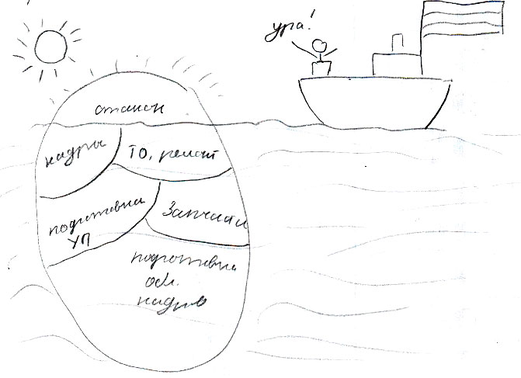 ура!
станок
кадры
ТО, ремонт
подготовка
УП
Запчасти
подготовка
осн.
кадров